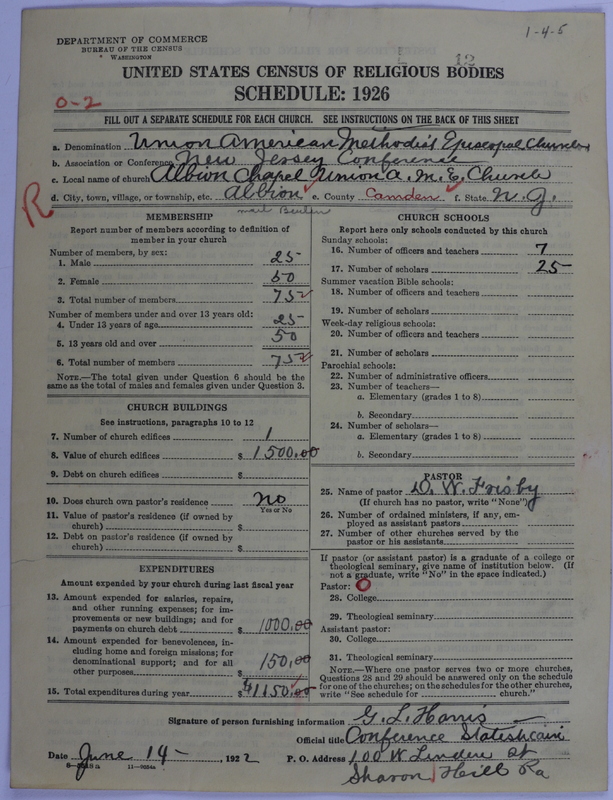 1-4-5
DEPARTMENT OF COMMERCE
BUREAU OF THE CENSUS
WASHINGTON
12
UNITED STATES CENSUS OF RELIGIOUS BODIES
SCHEDULE: 1926
0-2
FILL OUT A SEPARATE SCHEDULE FOR EACH CHURCH. SEE INSTRUCTIONS ON THE BACK OF THIS SHEET
a. Denomination Union American Methodist Episcopal Church
b. Association or Conference New Jersey Conference
c. Local name of church Albion Chapel Union A. M. E. Church
d. City, town, village, or township, etc. Albion e. County Camden f. State N. J.
R
MEMBERSHIP
Report number of members according to definition of
member in your church
Number of members, by sex:
1. Male 25
2. Female 50
3. Total number of members 75
Number of members under and over 13 years old:
4. Under 13 years of age 25
5. 13 years old and over 50
6. Total number of members 75
NOTE.—The total given under Question 6 should be the
same as the total of males and females given under Question 3.
CHURCH BUILDINGS
See instructions, paragraphs 10 to 12
7. Number of church edifices 1
8. Value of church edifices $ 1500.00
9. Debt on church edifices $
10. Does church own pastor's residence No
Yes or No
11. Value of pastor's residence (if owned by
church) $
12. Debt on pastor's residence (if owned by
church) $
EXPENDITURES
Amount expended by your church during last fiscal year
13. Amount expended for salaries, repairs,
and other running expenses; for im-
provements or new buildings; and for
payments on church debt $ 1000.00
14. Amount expended for benevolences, in-
cluding home and foreign missions; for
denominational support; and for all
other purposes $ 150.00
15. Total expenditures during year $ $1150.00
CHURCH SCHOOLS
Report here only schools conducted by this church
Sunday schools:
16. Number of officers and teachers 7
17. Number of scholars 25
Summer vacation Bible schools:
18. Number of officers and teachers
19. Number of scholars
Week-day religious schools:
20. Number of officers and teachers
21. Number of scholars
Parochial schools:
22. Number of administrative officers
23. Number of teachers—
a. Elementary (grades 1 to 8)
b. Secondary
24. Number of scholars—
a. Elementary (grades 1 to 8)
b. Secondary
PASTOR
25. Name of pastor D. W. Frisby
(If church has no pastor, write "None")
26. Number of ordained ministers, if any, em-
ployed as assistant pastors
27. Number of other churches served by the
pastor or his assistants
If pastor (or assistant pastor) is a graduate of a college or
theological seminary, give name of institution below. (If
not a graduate, write "No" in the space indicated.)
Pastor: O
28. College
29. Theological seminary
Assistant pastor:
30. College
31. Theological seminary
NOTE.—Where one pastor serves two or more churches,
Questions 28 and 29 should be answered only on the schedule
for one of the churches; on the schedules for the other churches,
write "See schedule for church."
Signature of person furnishing information G. L. Harris
Official title Conference Statisticain
Date June 14 -, 1922 P. O. Address 100 W Linden St
Sharon Hill Pa
11-9034a